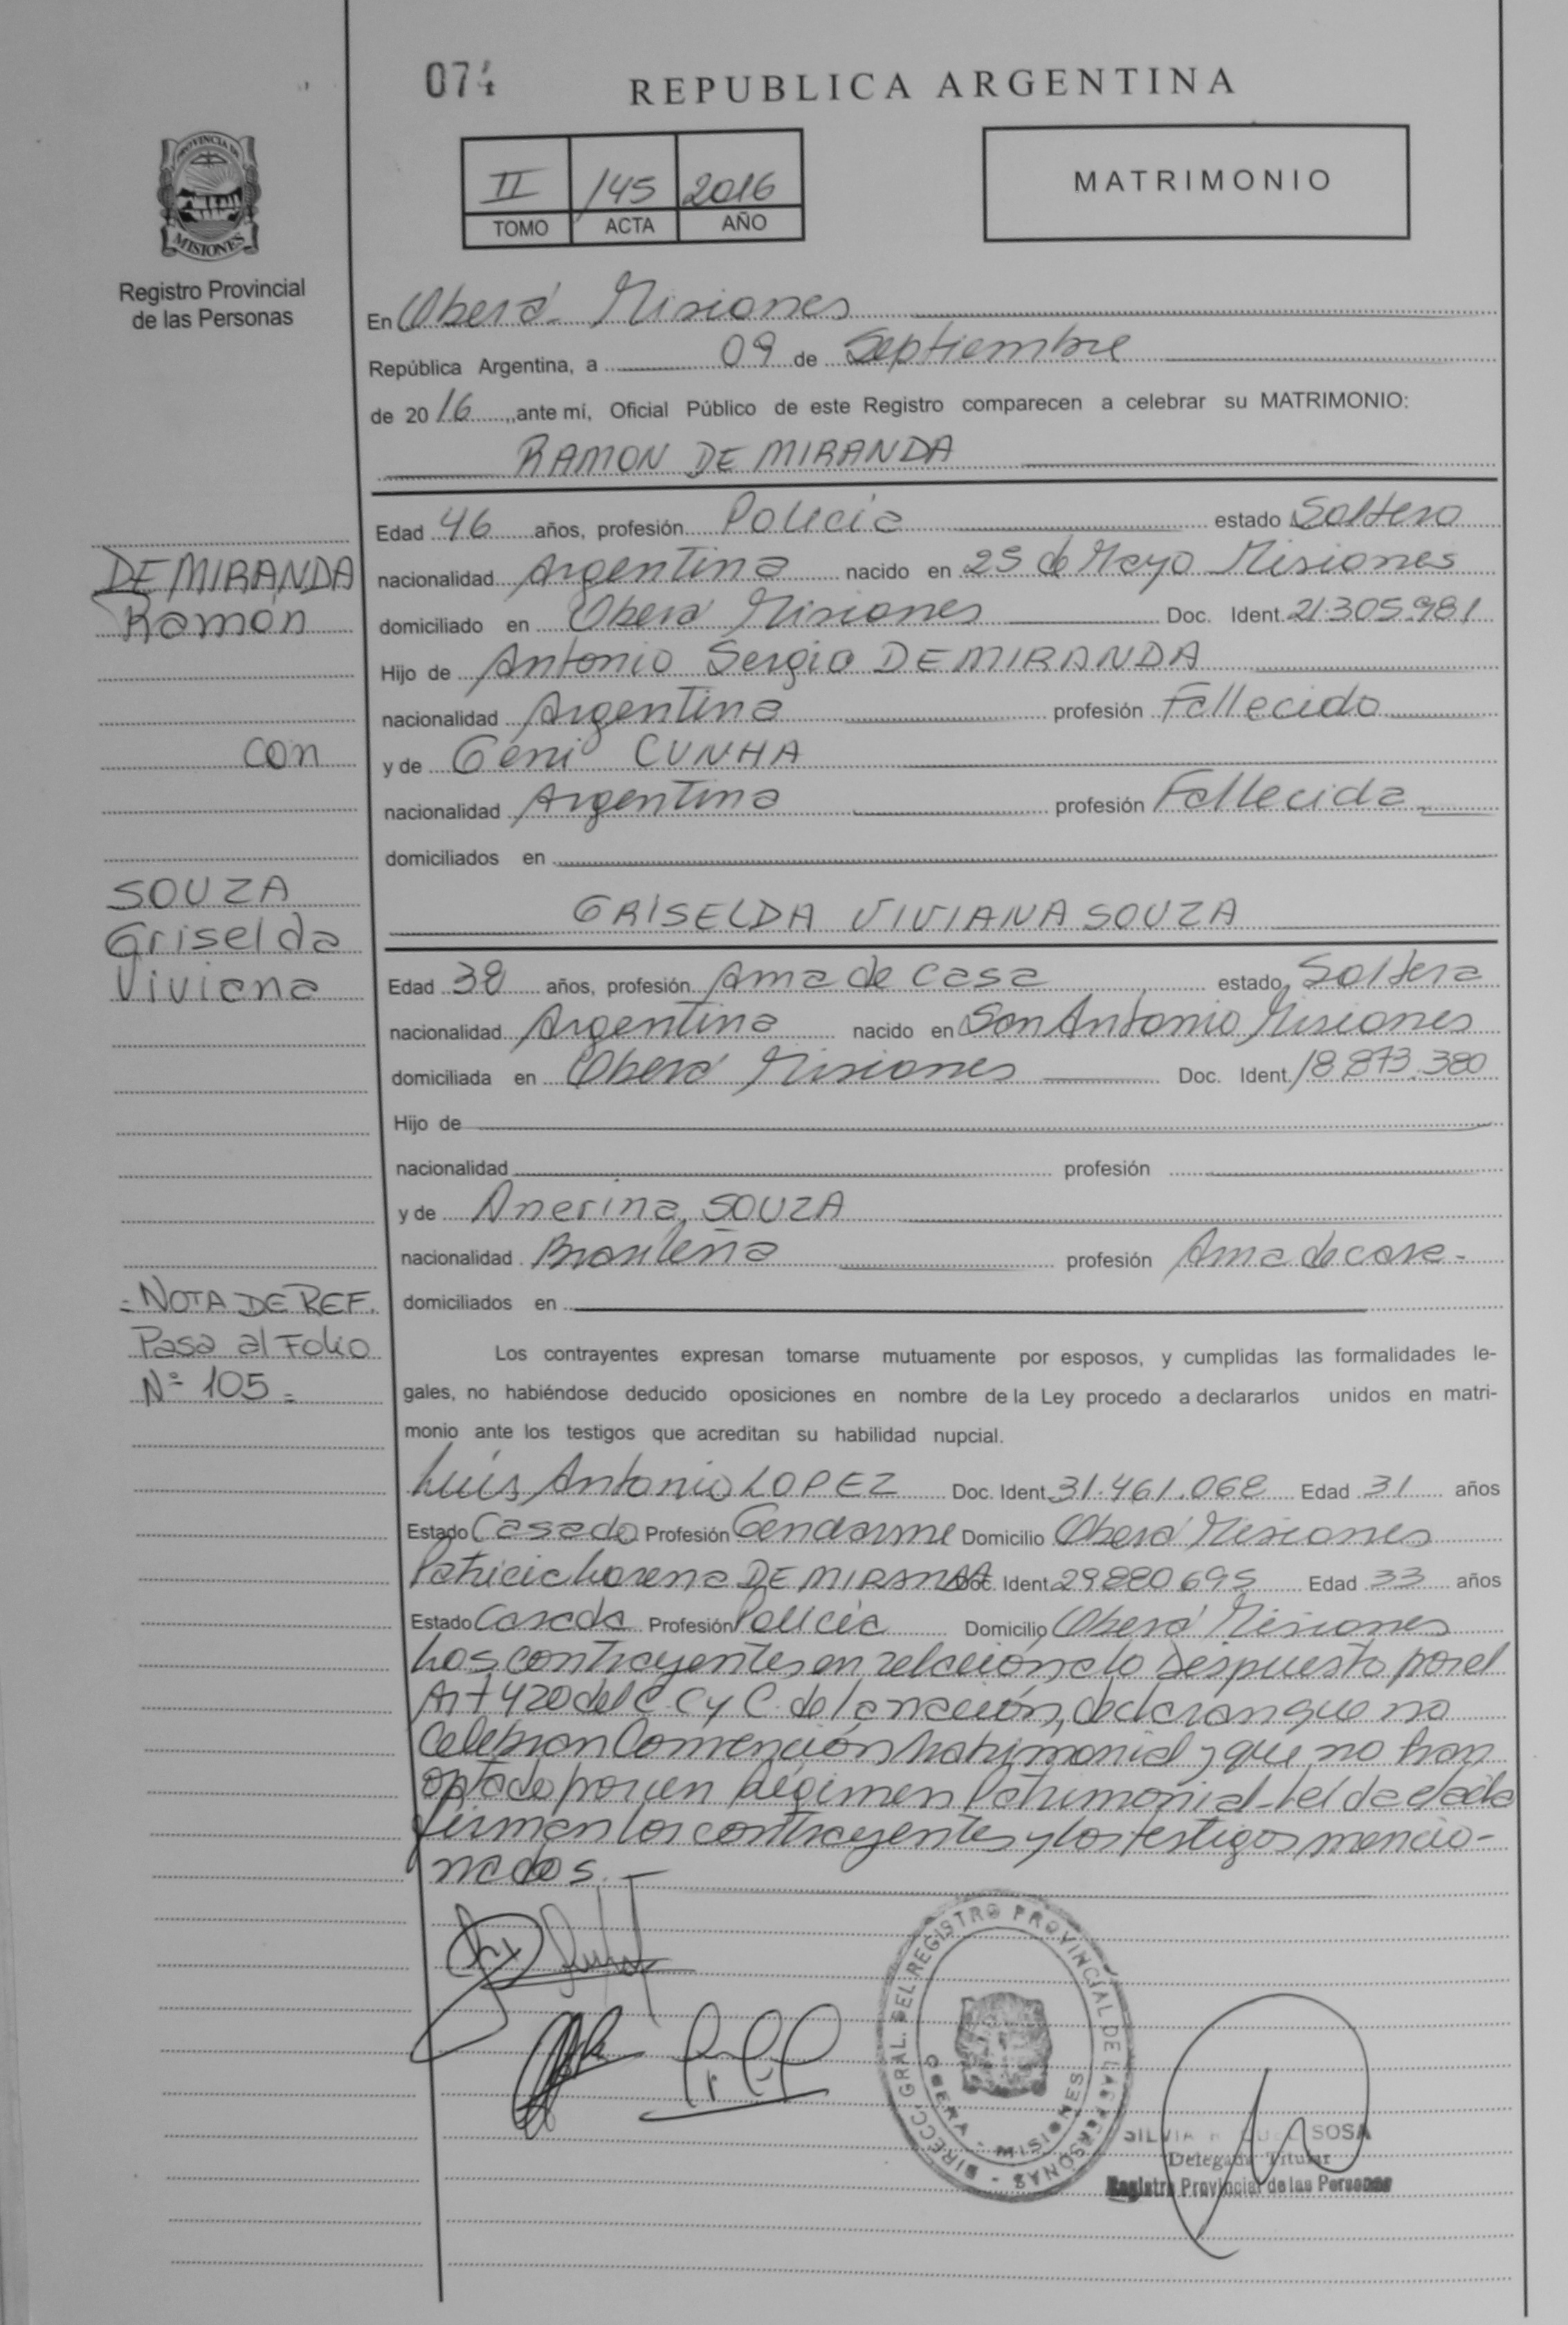 074
REPUBLICA ARGENTINA
PROVINCIA DE
MISIONES
Registro Provincial
de las Personas
II 145 2016
TOMO ACTA AÑO
MATRIMONIO
En Oberá Misiones
República Argentina, a 09 de Septiembre
de 2016, ante mí, Oficial Público de este Registro comparecen a celebrar su MATRIMONIO:
RAMON DE MIRANDA
Edad 46 años, profesión Policía estado Soltero
DE MIRANDA
nacionalidad Argentina nacido en 25 de Mayo Misiones
Ramón
domiciliado en Oberá Misiones Doc. Ident. 21.305.981
Hijo de Antonio Sergio DE MIRANDA
nacionalidad Argentina profesión Fallecido
con
y de Geni CUNHA
nacionalidad Argentina profesión Fallecida
domiciliados en
SOUZA
GRISELDA VIVIANA SOUZA
Griselda
Viviana
Edad 38 años, profesión Ama de casa estado Soltera
nacionalidad Argentina nacido en San Antonio Misiones
domiciliada en Oberá Misiones Doc. Ident. 18.873.380
Hijo de
nacionalidad profesión
y de Anerina SOUZA
nacionalidad Brasileña profesión Ama de casa-
= NOTA DE REF.
domiciliados en
Pasa al Folio
N° 105 =
Los contrayentes expresan tomarse mutuamente por esposos, y cumplidas las formalidades le-
gales, no habiéndose deducido oposiciones en nombre de la Ley procedo a declararlos unidos en matri-
monio ante los testigos que acreditan su habilidad nupcial.
Luis Antonio LOPEZ Doc. Ident. 31.461.068 Edad 31 años
Estado Casado Profesión Gendarme Domicilio Oberá Misiones
Patricia Lorena DE MIRANDA Doc. Ident. 29880695 Edad 33 años
Estado Casada Profesión Policía Domicilio Oberá Misiones
Los contrayentes en relación a lo Despuesto por el
Art 420 del C. C y C. de la nación, declaran que no
Celebran Convención Matrimonial y que no han
optado por un Régimen Patrimonial-
firman los contrayentes y los testigos mencio-
nados.-
DIRECC. GRAL. DEL REGISTRO PROVINCIAL DE LAS PERSONAS
OBERA - MISIONES
SILVIA SOSA
Delegada Titular
Registro Provincial de las Personas